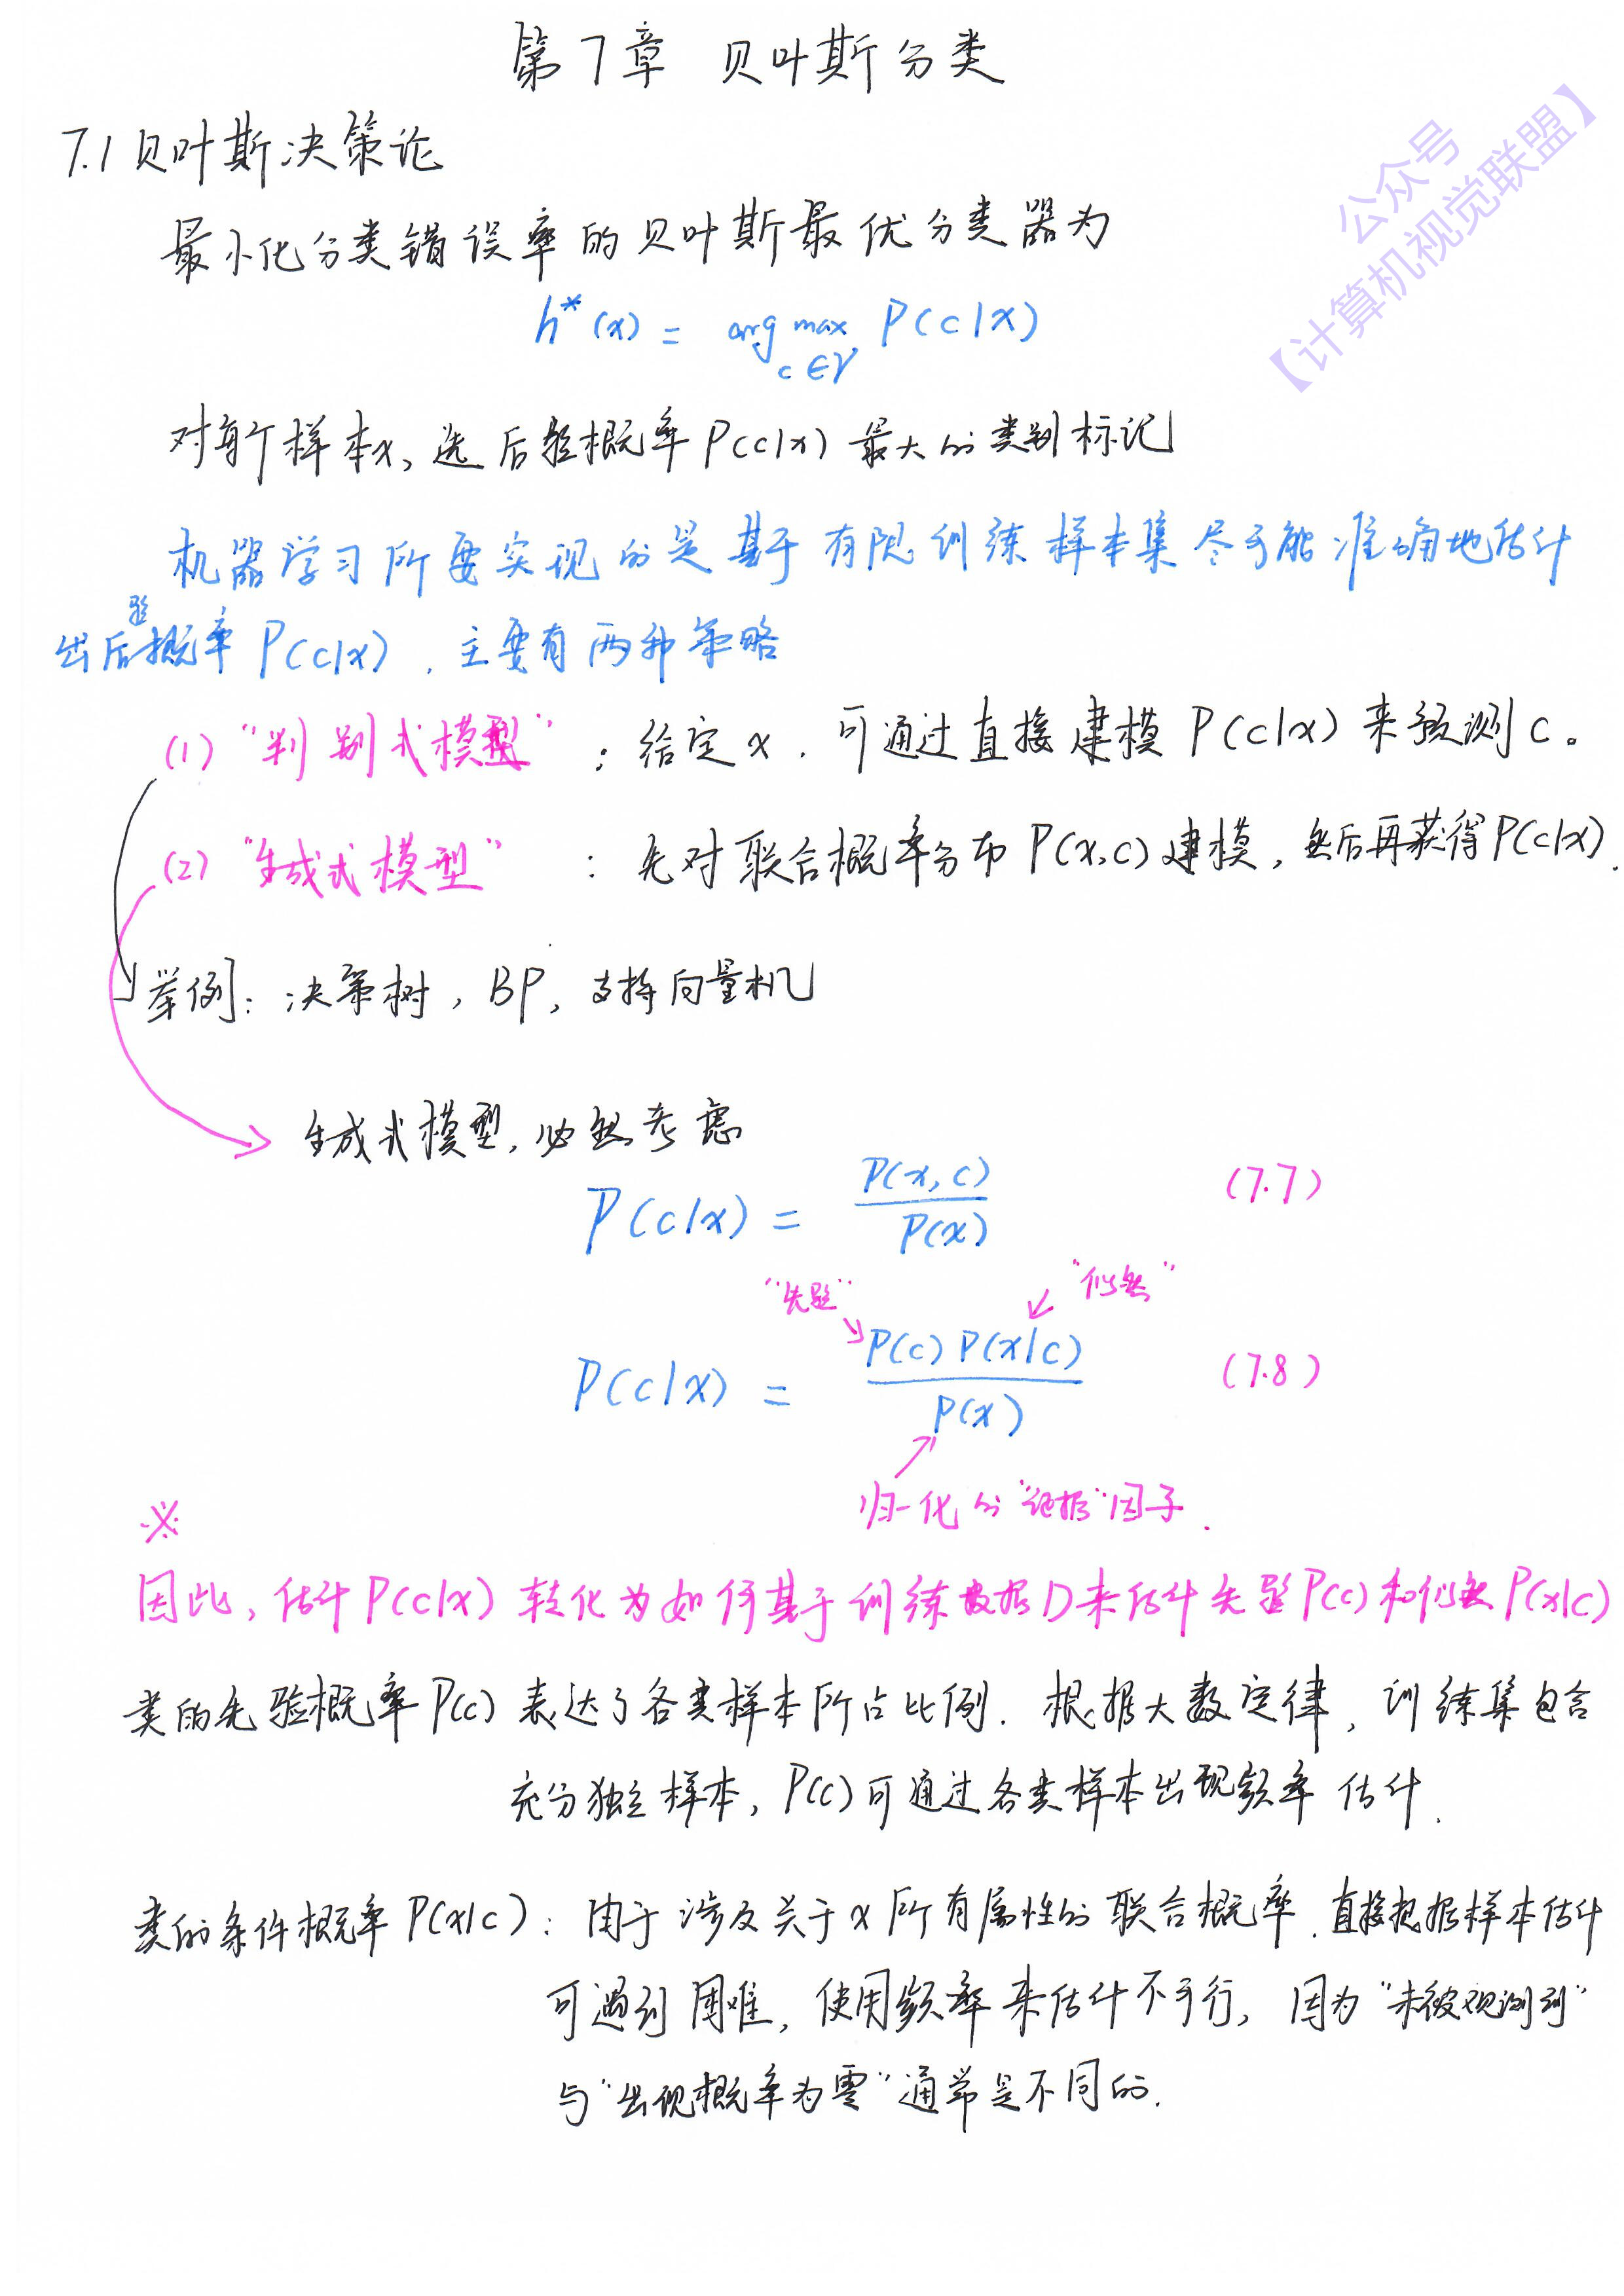 第7章 贝叶斯分类
公众号
【计算机视觉联盟】
7.1 贝叶斯决策论
最小化分类错误率的贝叶斯最优分类器为
h*(x) = arg max P(c|x)
c∈γ
对每个样本x, 选后验概率P(c|x) 最大的类别标记
机器学习所要实现的是基于有限训练样本集尽可能准确地估计
出后验概率 P(c|x), 主要有两种策略
(1) "判别式模型" : 给定x, 可通过直接建模 P(c|x) 来预测c。
(2) "生成式模型" : 先对联合概率分布 P(x,c) 建模, 然后再获得P(c|x).
举例: 决策树, BP, 支持向量机
生成式模型, 必然考虑
P(c|x) = P(x,c) / P(x) (7.7)
"先验" "似然"
P(c|x) = P(c) P(x|c) / P(x) (7.8)
归一化的"证据"因子.
※
因此, 估计P(c|x) 转化为如何基于训练数据D来估计先验P(c)和似然P(x|c)
类的先验概率P(c) 表达了各类样本所占比例. 根据大数定律, 训练集包含
充分独立样本, P(c)可通过各类样本出现频率估计.
类的条件概率P(x|c): 由于涉及关于x所有属性的联合概率. 直接根据样本估计
可遇到困难, 使用频率来估计不可行, 因为"未被观测到"
与"出现概率为零"通常是不同的.